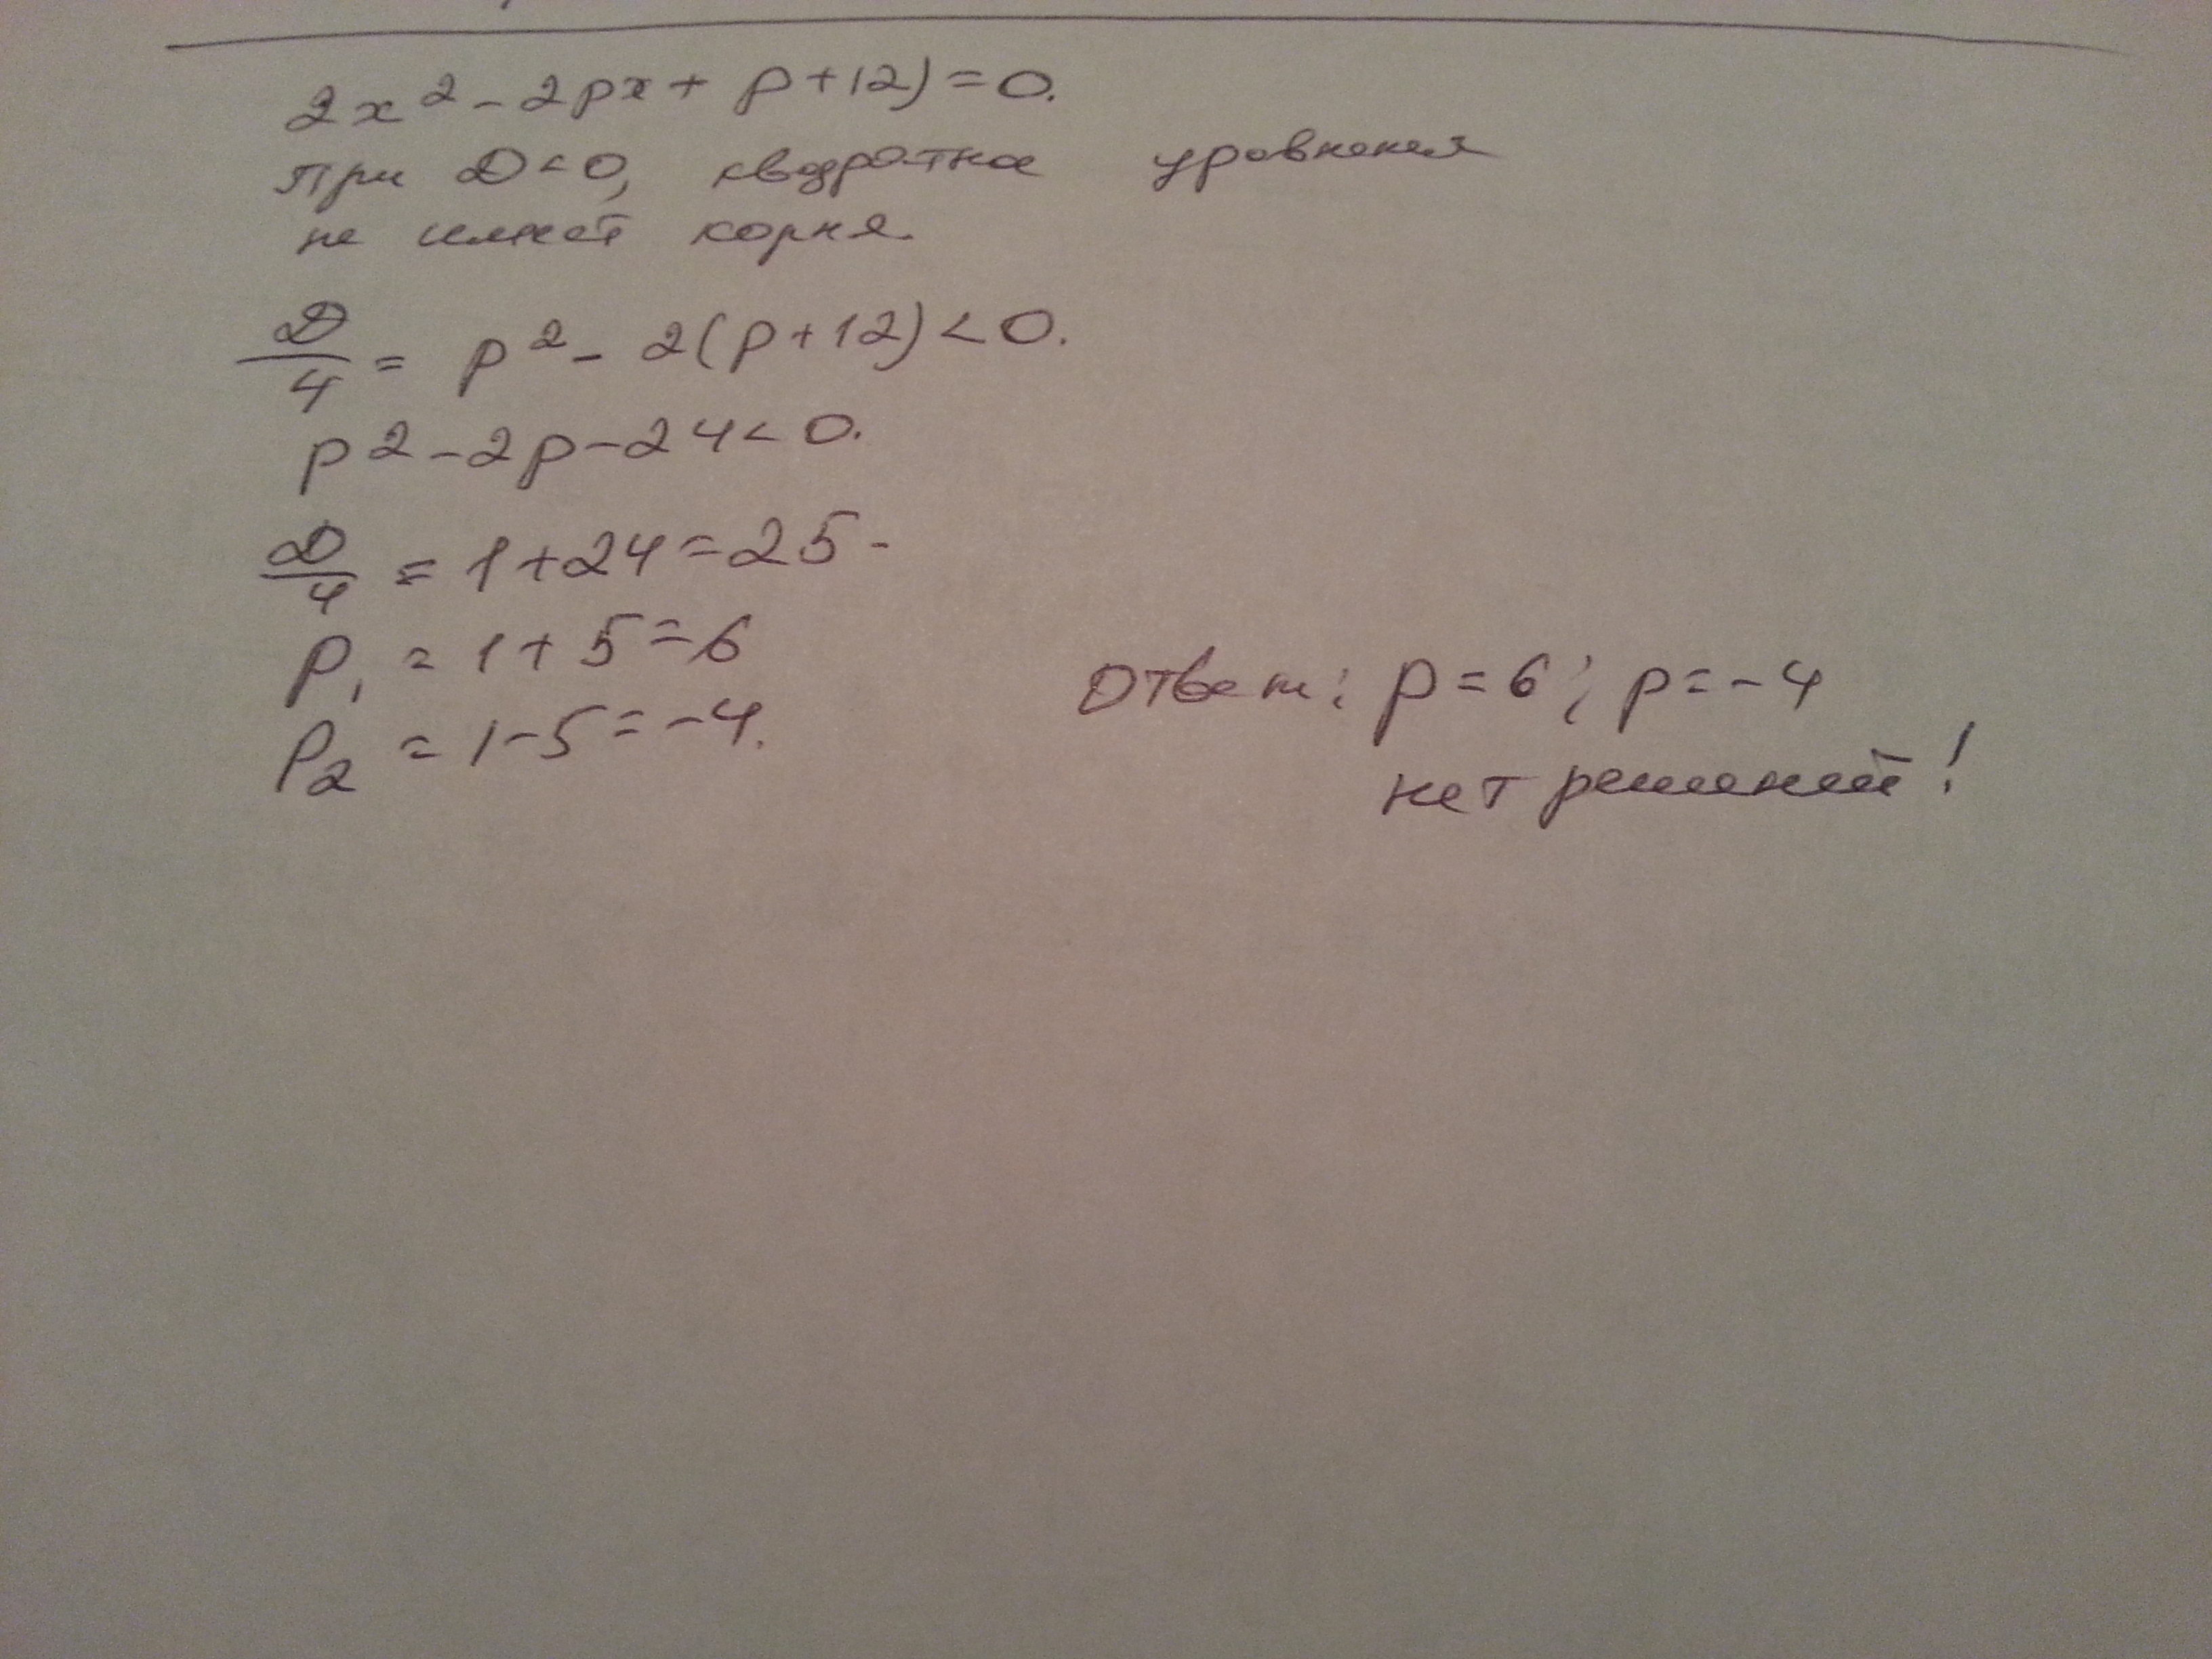 2x² - 2px + p + 12) = 0.
При D < 0, квадратное уровнения
не имеет корня.
D/4 = p² - 2(p + 12) < 0.
p² - 2p - 24 < 0.
D/4 = 1 + 24 = 25 -
p₁ = 1 + 5 = 6
p₂ = 1 - 5 = -4.
Ответ: p = 6; p = -4
нет решений!